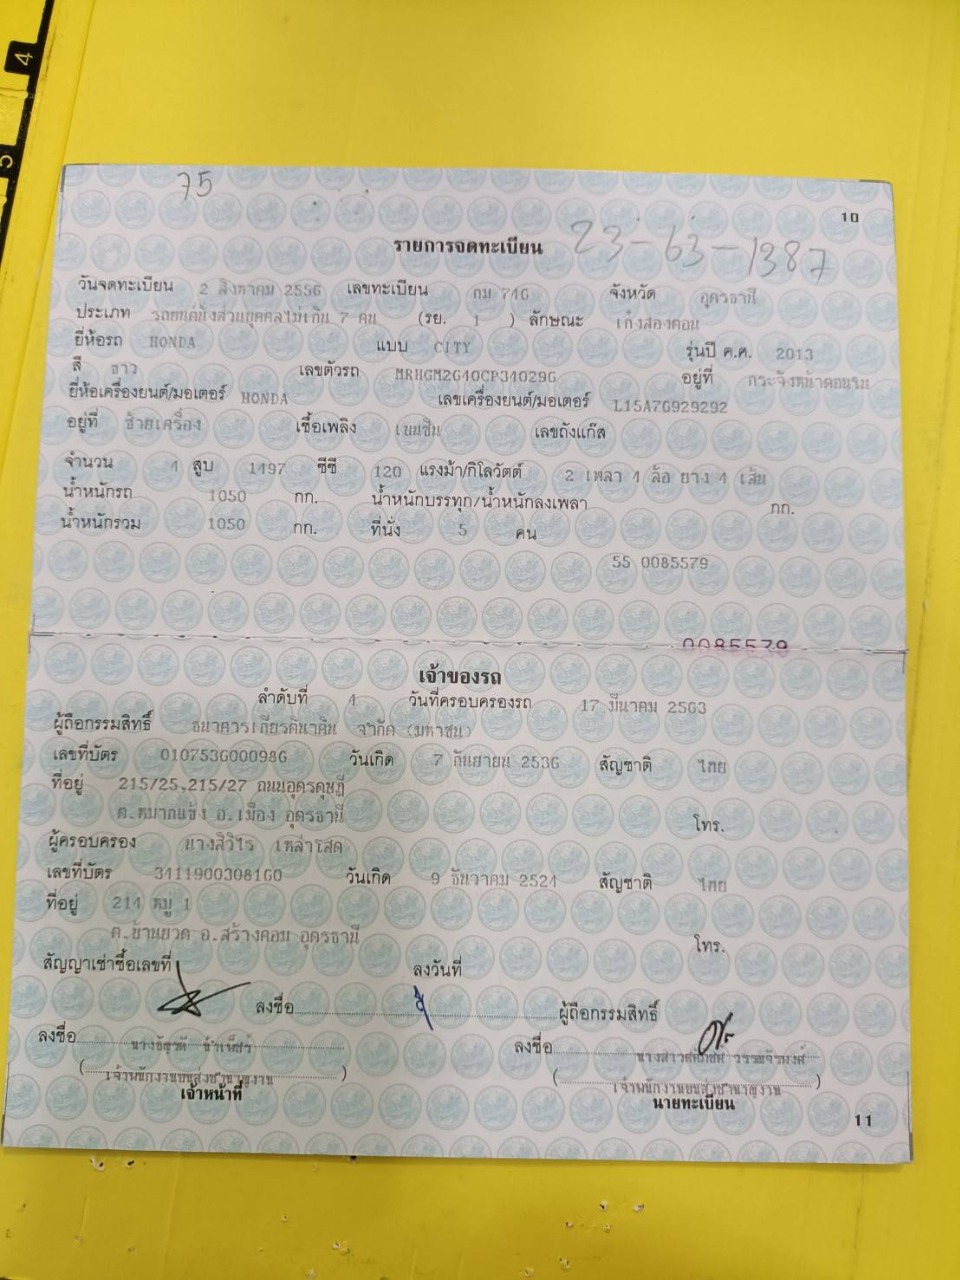 4
5
75
10
23-63-1387
รายการจดทะเบียน
วันจดทะเบียน 2 สิงหาคม 2556 เลขทะเบียน กม 746 จังหวัด อุดรธานี
ประเภท รถยนต์นั่งส่วนบุคคลไม่เกิน 7 คน (รย. 1 ) ลักษณะ เก๋งสองตอน
ยี่ห้อรถ HONDA แบบ CITY รุ่นปี ค.ศ. 2013
สี ขาว เลขตัวรถ MRHGM2640CP340296 อยู่ที่ กระจังหน้าตอนใน
ยี่ห้อเครื่องยนต์/มอเตอร์ HONDA เลขเครื่องยนต์/มอเตอร์ L15A76929292
อยู่ที่ ซ้ายเครื่อง เชื้อเพลิง เบนซิน เลขถังแก๊ส
จำนวน 4 สูบ 1497 ซีซี 120 แรงม้า/กิโลวัตต์ 2 เพลา 4 ล้อ ยาง 4 เส้น
น้ำหนักรถ 1050 กก. น้ำหนักบรรทุก/น้ำหนักลงเพลา กก.
น้ำหนักรวม 1050 กก. ที่นั่ง 5 คน
55 0085579
0085579
เจ้าของรถ
ลำดับที่ 4 วันที่ครอบครองรถ 17 มีนาคม 2563
ผู้ถือกรรมสิทธิ์ ธนาคารเกียรตินาคิน จำกัด (มหาชน)
เลขที่บัตร 0107536000986 วันเกิด 7 กันยายน 2536 สัญชาติ ไทย
ที่อยู่ 215/25,215/27 ถนนอุดรดุษฎี
ต.หมากแข้ง อ.เมือง อุดรธานี โทร.
ผู้ครอบครอง นางสิวิไร เหล่าโสด
เลขที่บัตร 3411900308160 วันเกิด 9 ธันวาคม 2524 สัญชาติ ไทย
ที่อยู่ 214 หมู่ 1
ต.บ้านยวด อ.สร้างคอม อุดรธานี โทร.
สัญญาเช่าซื้อเลขที่ ลงวันที่
ลงชื่อ ผู้ถือกรรมสิทธิ์
ลงชื่อ ลงชื่อ นางสาว
(เจ้าพนักงานขนส่งชำนาญงาน) (เจ้าพนักงานขนส่งชำนาญงาน)
เจ้าหน้าที่ นายทะเบียน
11